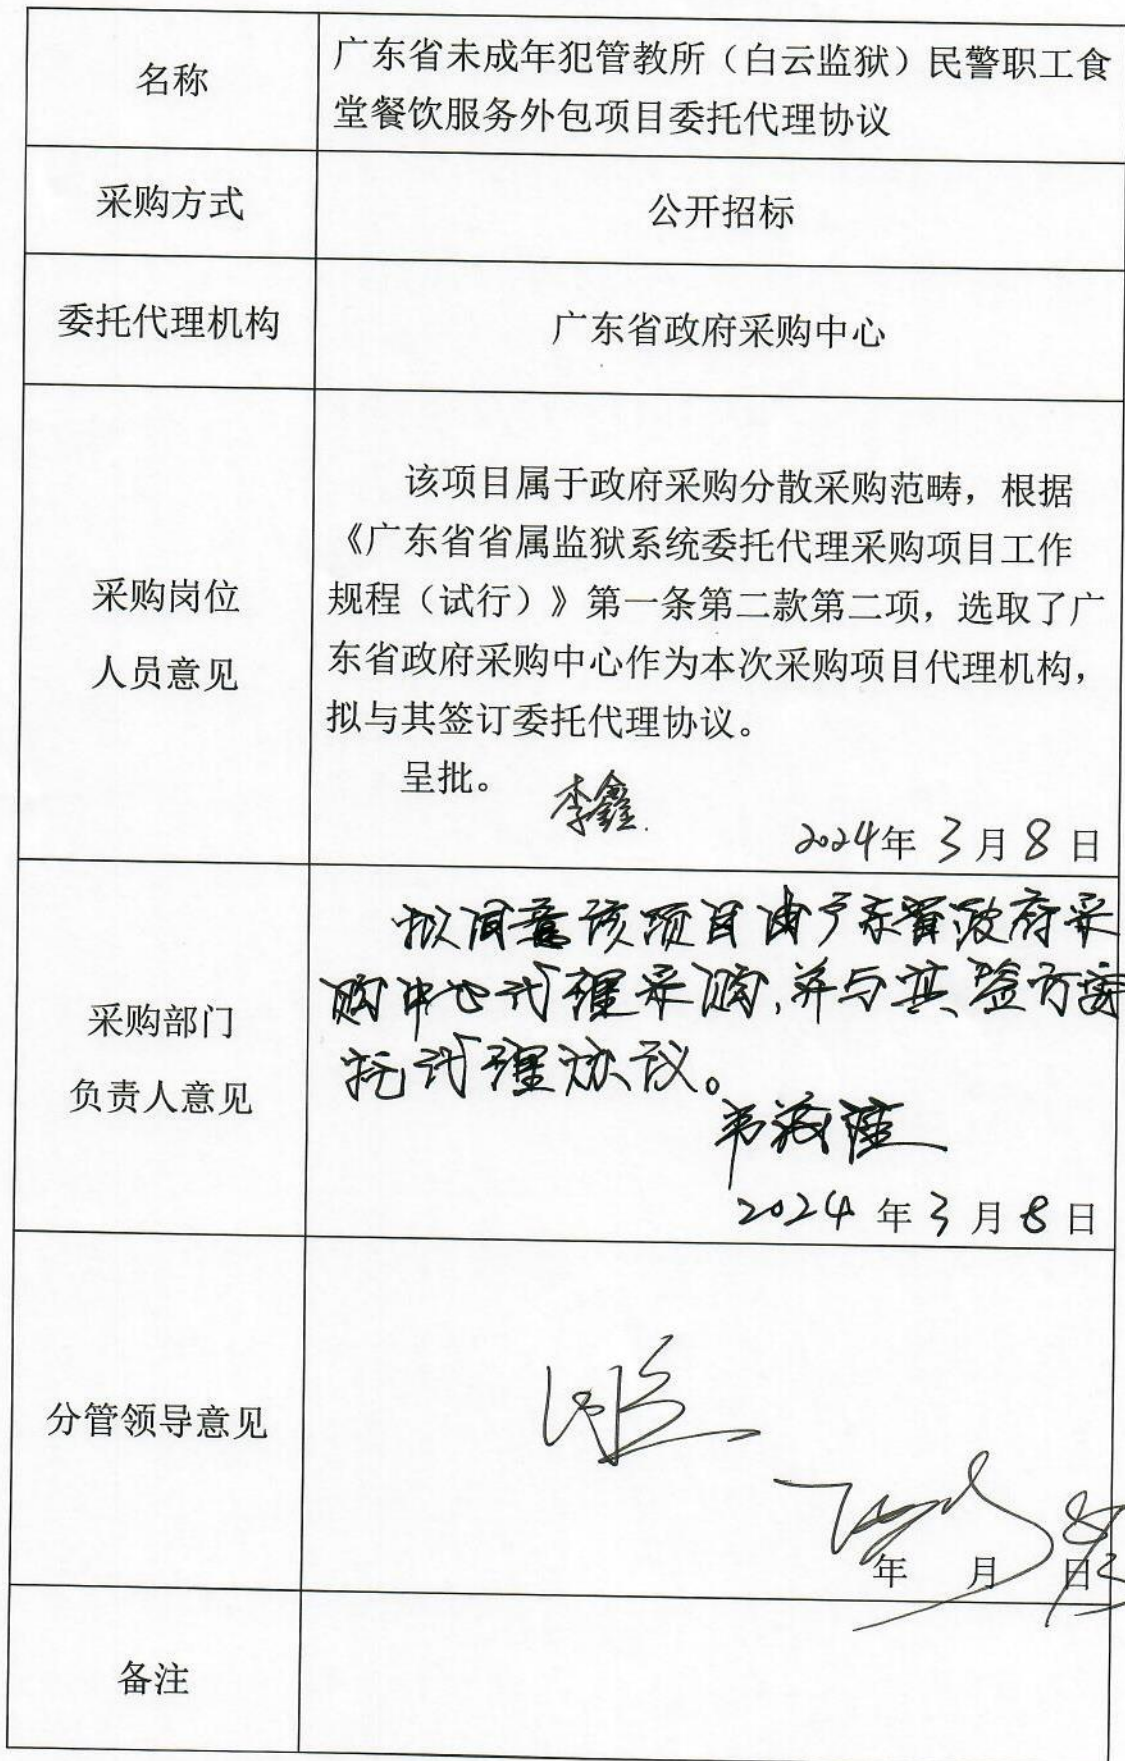 名称
广东省未成年犯管教所（白云监狱）民警职工食
堂餐饮服务外包项目委托代理协议
采购方式
公开招标
委托代理机构
广东省政府采购中心
采购岗位
人员意见
该项目属于政府采购分散采购范畴，根据
《广东省省属监狱系统委托代理采购项目工作
规程（试行）》第一条第二款第二项，选取了广
东省政府采购中心作为本次采购项目代理机构，
拟与其签订委托代理协议。
呈批。
李鑫
2024年3月8日
采购部门
负责人意见
拟同意该项目由广东省政府采
购中心代理采购,并与其签订委
托代理协议。
2024年3月8日
分管领导意见
年 月 日
备注